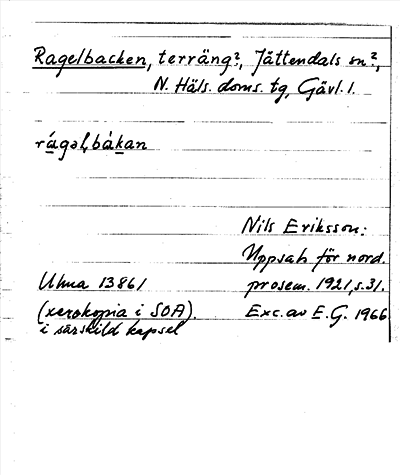 Ragelbacken, terräng?, Jättendals sn?,
N. Häls. doms. tg, Gävl. l.
rágəl,bàkan
Nils Eriksson:
Uppsats för nord.
Uhua 13861 prosem. 1921, s. 31.
(xerokopia i SOA). Exc. av E.G. 1966
i särskild kapsel